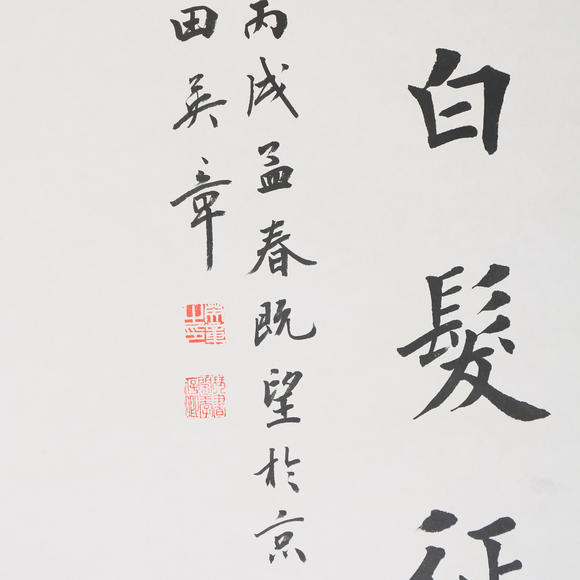 白髮征
丙戌孟春既望於京
田英章